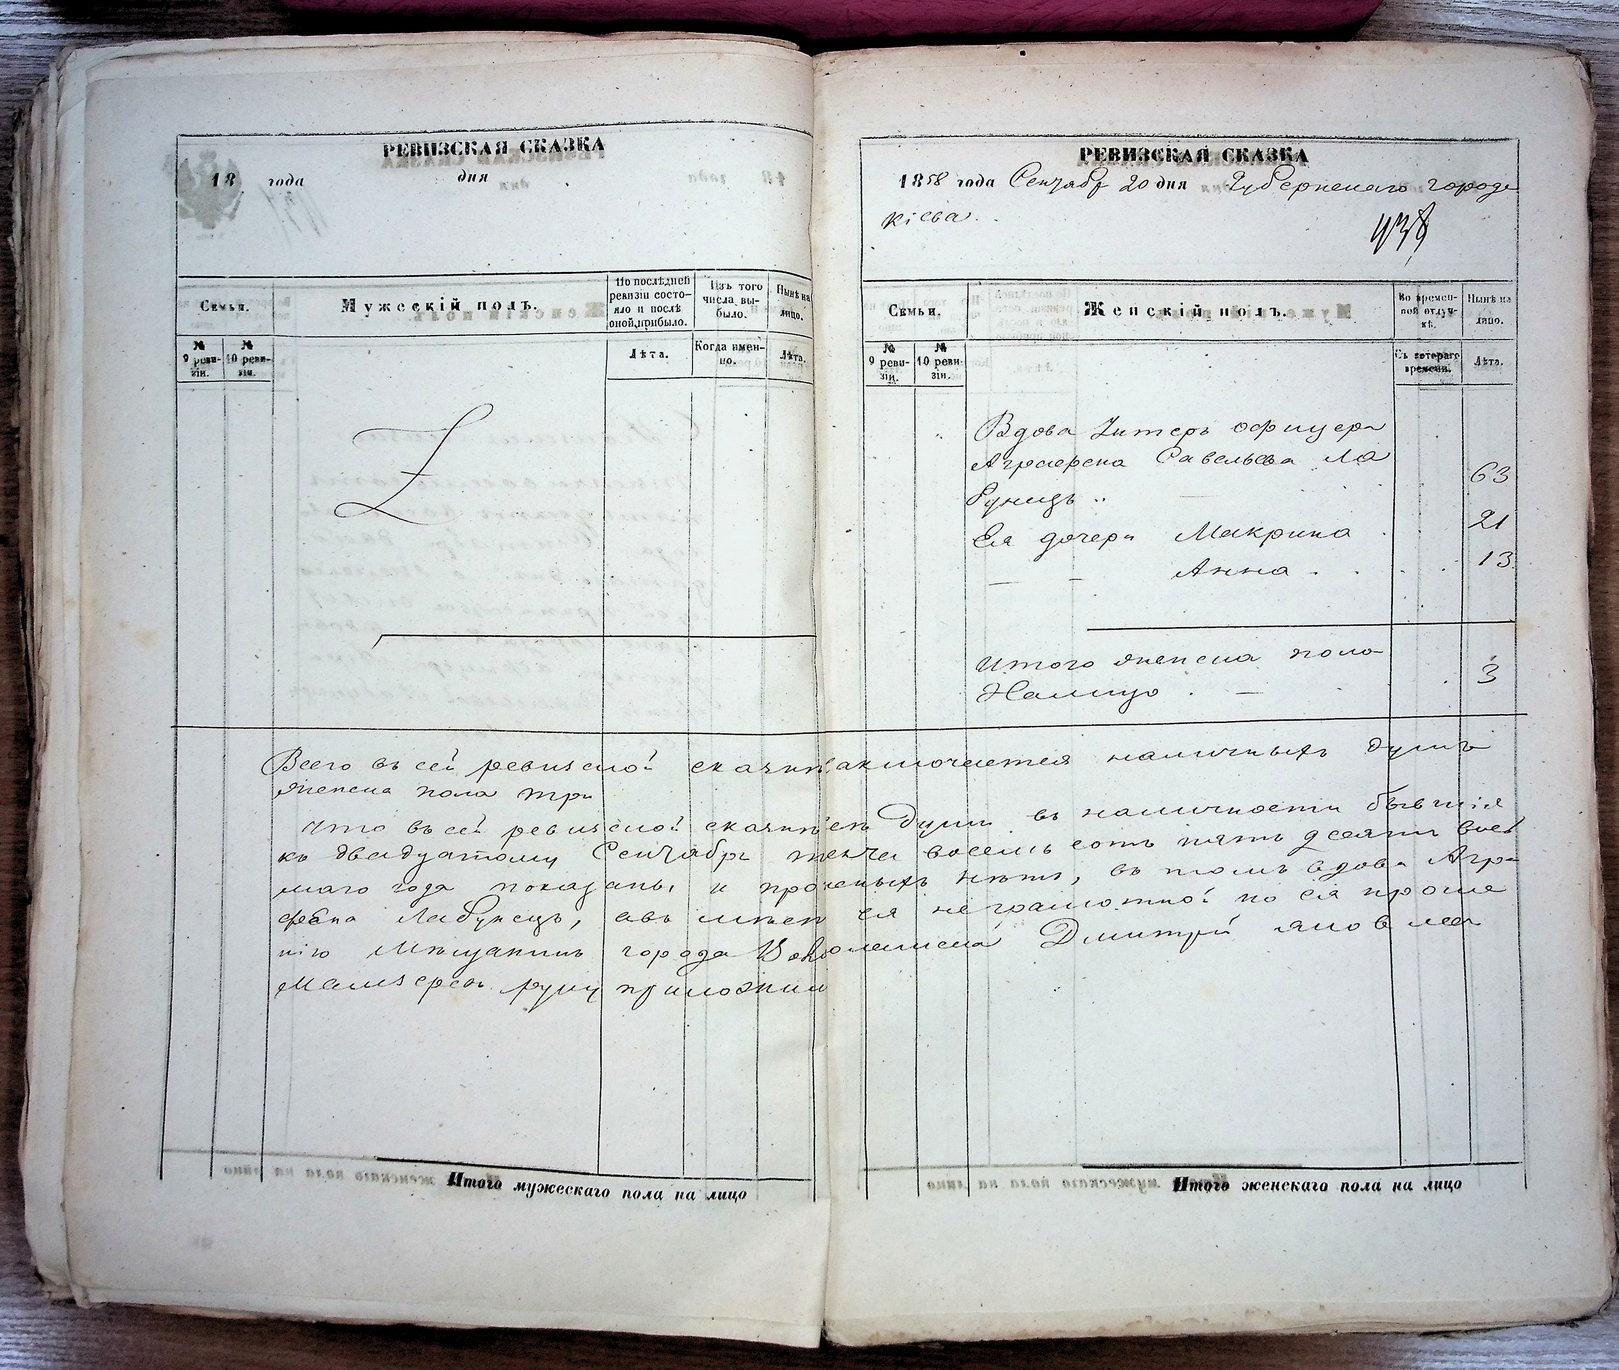 РЕВИЗСКАЯ СКАЗКА
18 года дня
Семьи.
Мужескій полъ.
По послѣдней ревизіи состояло и послѣ оной прибыло.
Изъ того числа выбыло.
Нынѣ на лицо.
№ 9 ревизіи.
№ 10 ревизіи.
Лѣта.
Когда именно.
Лѣта.
РЕВИЗСКАЯ СКАЗКА
1858 года Сентября 20 дня Губернскаго города
Кіева
438
Семьи.
Женскій полъ.
Во временной отлучкѣ.
Нынѣ на лицо.
№ 9 ревизіи.
№ 10 ревизіи.
Съ котораго времени.
Лѣта.
Вдова Унтеръ офицера
Агрофена Савельева Ла
бунецъ 63
Ея дочери Макрина 21
Анна 13
Итого женска пола
Налицо 3
Всего въ сей ревизской сказкѣ заключается наличныхъ душъ
женска пола три
Что въ сей ревизской сказкѣ всѣ души въ наличности бывшія
къ двадцатому Сентября тысяча восемь сотъ пять десятъ вось
маго года показаны и прописныхъ нѣтъ, въ томъ вдова Агра
фена Лабунецъ, а вмѣсто ея неграмотной по ея проше
нію мѣщанинъ города Дмитрій Яковлевъ
руку приложилъ
Итого мужескаго пола на лицо
Итого женскаго пола на лицо